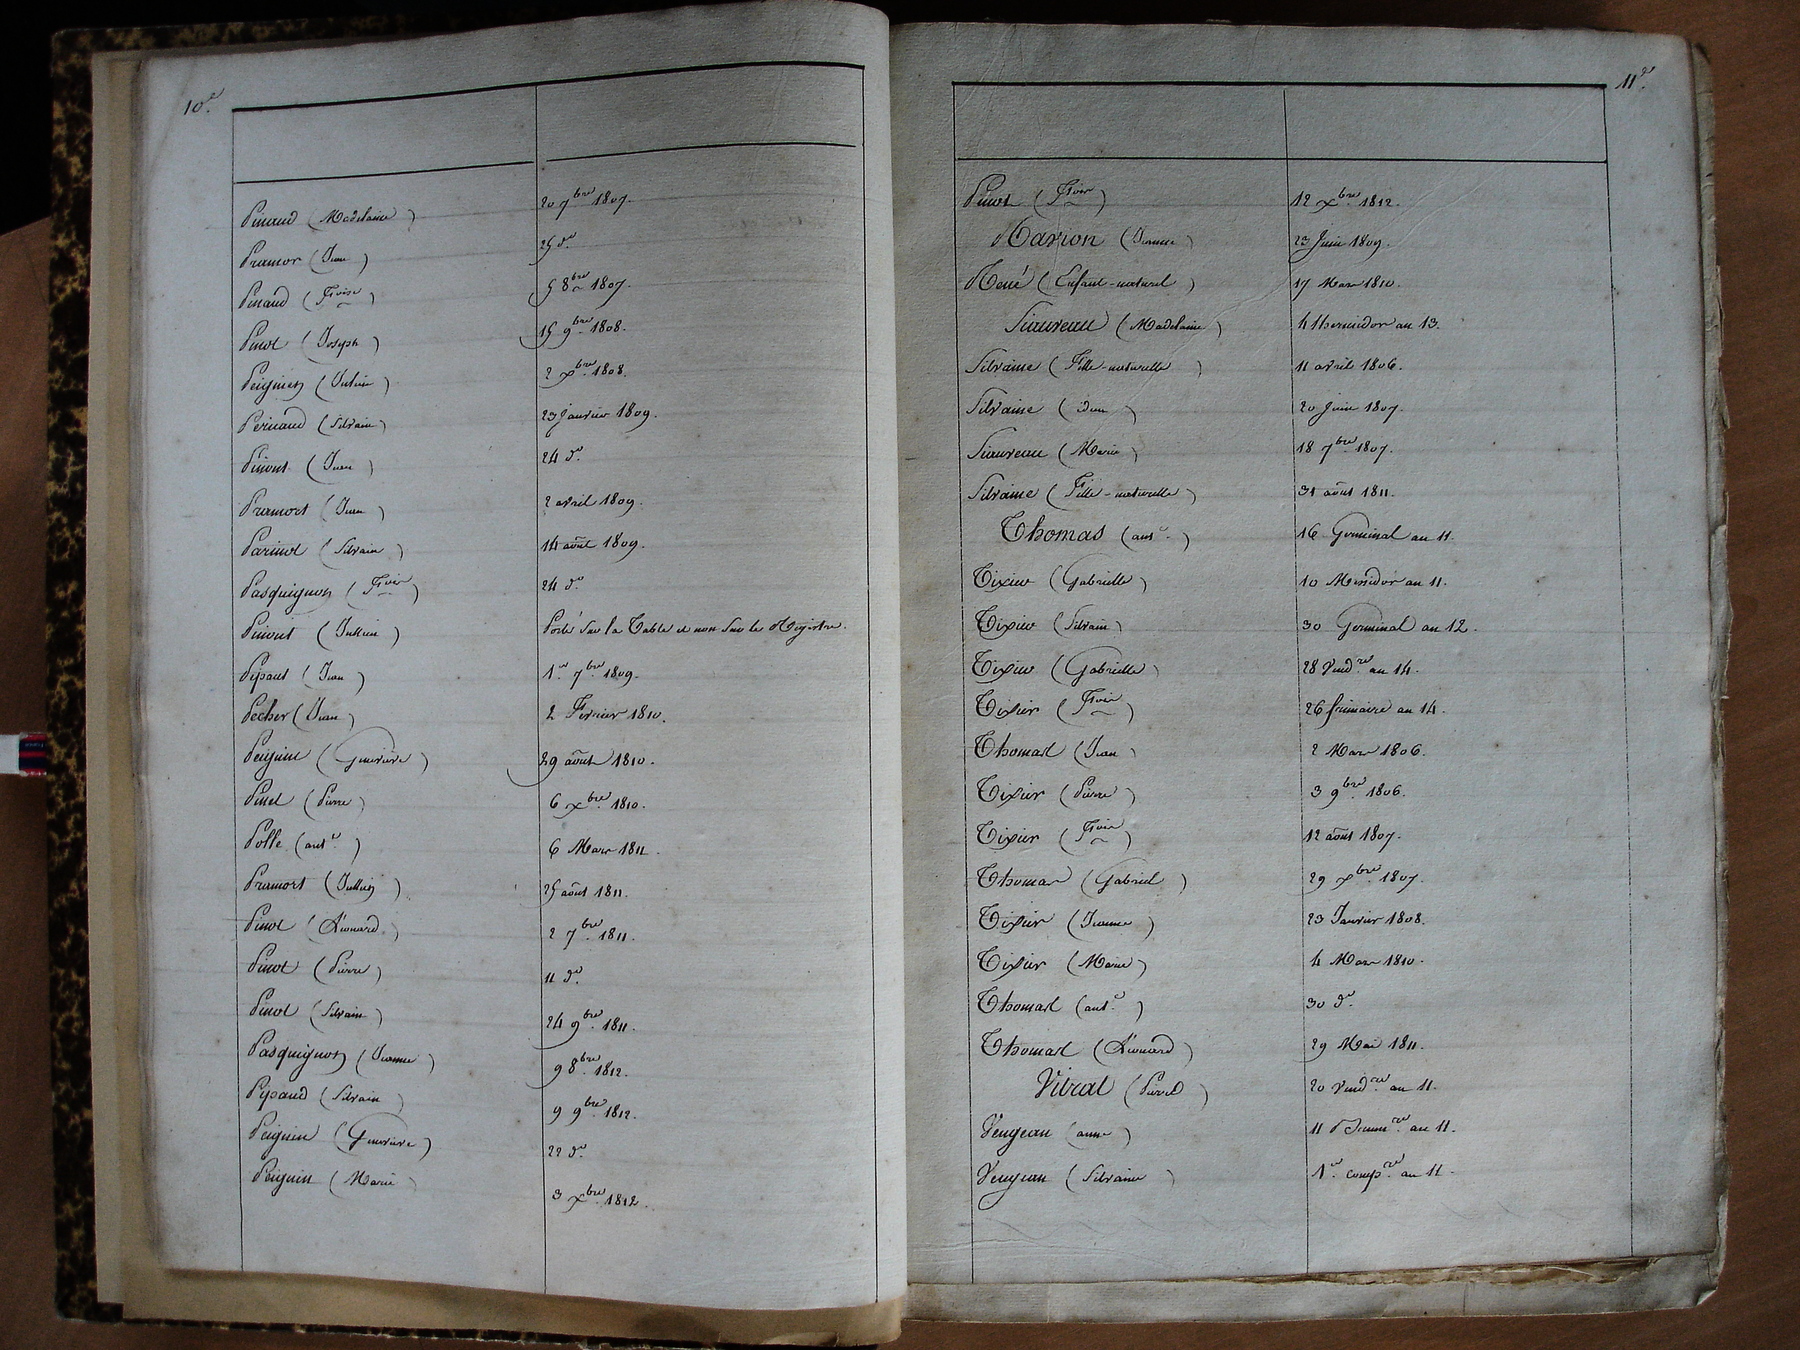 10e.
Pinaud (Madelaine) 20 7bre 1807.
Pramor (Jean) 25 do.
Pinaud (Fçoise) 5 8bre 1807.
Pinot (Joseph) 15 9bre 1808.
Peignien (Julien) 2 xbre 1808.
Pernaud (Silvain) 23 janvier 1809.
Pinont (Jean) 24 do.
Pramort (Jean) 2 avril 1809.
Parinot (Silvain) 14 août 1809.
Pasquignon (Fçois) 24 do.
Pinont (Jullien) Porté sur la Table et non sur le Régistre.
Pipaut (Jean) 1er 7bre 1809.
Pecher (Jean) 2 Février 1810.
Peignin (Genevieve) 29 août 1810.
Pinet (Pierre) 6 xbre 1810.
Polle (ante.) 6 Mars 1811.
Pramort (Jullien) 25 août 1811.
Pinot (Léonard) 2 7bre 1811.
Pinot (Pierre) 11 do.
Pinot (Silvain) 24 9bre 1811.
Pasquignon (Jeanne) 9 8bre 1812.
Pipaud (Silvain) 9 9bre 1812.
Peignin (Genevieve) 22 do.
Peignin (Marie) 3 xbre 1812.
11e.
Pinot (Fçois) 12 xbre 1812.
Ravion (Jeanne) 23 Juin 1809.
René (Enfant-naturel) 17 Mars 1810.
Siaureau (Madelaine) 4 thermidor an 13.
Silvaine (Fille-naturelle) 11 avril 1806.
Silvaine (idem) 20 Juin 1807.
Siaureau (Marie) 18 7bre 1807.
Silvaine (Fille-naturelle) 31 août 1811.
Thomas (ante.) 16 Germinal an 11.
Tixier (Gabrielle) 10 Messidor an 11.
Tixier (Silvain) 30 Germinal an 12.
Tixier (Gabrielle) 28 Vendre an 14.
Tixier (Fçois) 26 frimaire an 14.
Thomas (Jean) 2 Mars 1806.
Tixier (Pierre) 3 9bre 1806.
Tixier (Fçois) 12 août 1807.
Thomas (Gabriel) 29 xbre 1807.
Tixier (Jeanne) 23 Janvier 1808.
Tixier (Marie) 4 Mars 1810.
Thomas (ante.) 30 do.
Thomas (Léonard) 29 Mai 1811.
Vitrat (Pierre) 20 Vendre an 11.
Vengean (anne) 11 Brumre an 11.
Vengean (Silvaine) 1er compre an 11.